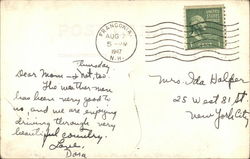 POST
FRANCONIA
AUG 7
5 PM
1947
N.H.
Thursday
Dear Mom & Nat, too.
The weather man
has been very good to
us, and we are enjoying
driving through very
beautiful country.
Love,
Dora
Mrs. Ida Halper
25 West 81 St.
New York City